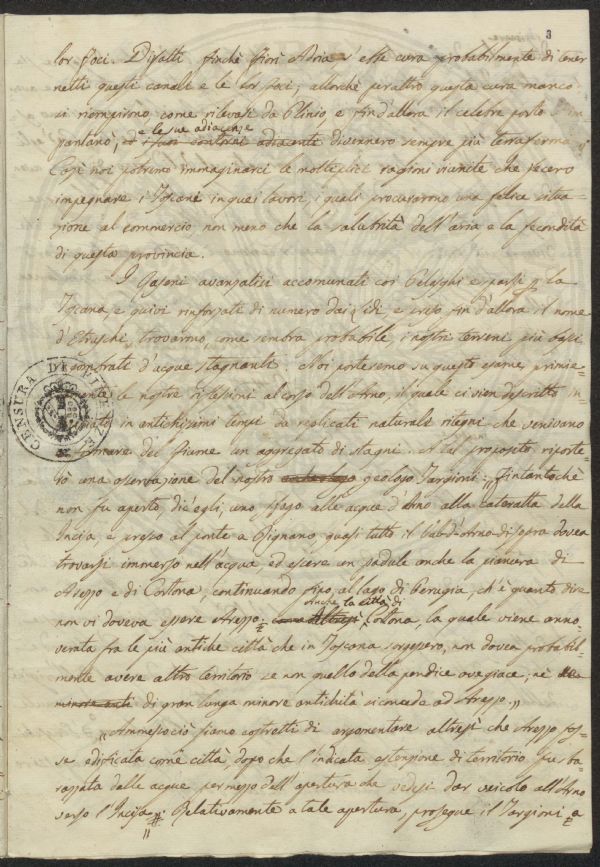 3
lor foci. Difatti finchè fiorì Adria s'ebbe cura probabilmente di tener
netti questi canali e le lor foci; allorchè peraltro questa cura mancò
si riempirono, come rilevasi da Plinio, e fin d'allora il celebre porto s'im
pantanò, ed i suoi contorni adiacenti e le sue adiacenze divennero sempre più terra ferma.
Così noi potremo immaginarci le molteplici ragioni riunite che fecero
impegnare i Toscani in quei lavori, i quali procurarono una felice situa-
zione al commercio, non meno che la salubrità dell'aria e la fecondità
di questa provincia.
I Raseni avanzatisi accomunati coi Pelasghi e sparsi p la
Toscana, e quivi rinforzati di numero dai Lidi, e preso fin d'allora il nome
d'Etruschi, trovarono, come sembra probabile, i nostri terreni più bassi
ingombrati d'acque stagnanti. Noi porteremo su questo esame primie-
le nostre riflessioni al corso dell'Arno, il quale ci vien descritto in-
in antichissimi tempi da replicati naturali ritegni che venivano
a formare del fiume un aggregato di stagni. A tal proposito riporte-
rò una osservazione del nostro geologo Targioni: "Fintantochè
non fu aperto, dic'egli, uno sfogo alle acque d'Arno alla cateratta della
Incisa, e presso al ponte a Rignano, quasi tutto il Val-d'Arno di sopra dovea
trovarsi immerso nell'acqua, ed essere un padule anche la pianura di
Arezzo e di Cortona, continuando fino al lago di Perugia, ch'è quanto dire
non vi doveva essere Arezzo: anche la città di Cortona, la quale viene anno-
verata fra le più antiche città che in Toscana sorgessero, non dovea probabil-
mente avere altro territorio se non quello della pendice ove giace; nè
minore anti di gran lunga minore antichità si concede ad Arezzo."
"Ammessociò siamo costretti di argomentare altresì che Arezzo fos-
se edificata come città dopo che l'indicata estensione di territorio fu ba-
razzata dalle acque per mezzo dell'apertura che vedesi dar veicolo all'Arno
verso l'Incisa. Relativamente a tale apertura, prosegue il Targioni a
CENSURA DI FIRENZE